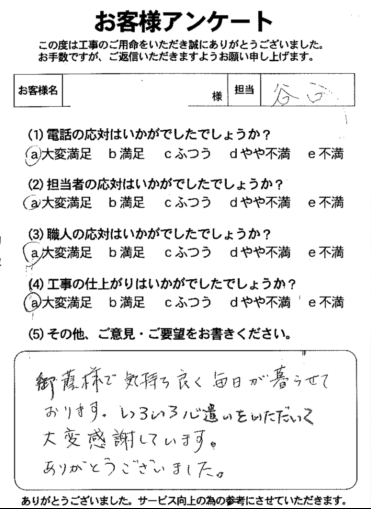 お客様アンケート
この度は工事のご用命をいただき誠にありがとうございました。
お手数ですが、ご返信いただきますようお願い申し上げます。
お客様名 様 担当 谷
(1) 電話の応対はいかがでしたでしょうか？
a大変満足 b満足 cふつう dやや不満 e不満
(2) 担当者の応対はいかがでしたでしょうか？
a大変満足 b満足 cふつう dやや不満 e不満
(3) 職人の応対はいかがでしたでしょうか？
a大変満足 b満足 cふつう dやや不満 e不満
(4) 工事の仕上がりはいかがでしたでしょうか？
a大変満足 b満足 cふつう dやや不満 e不満
(5) その他、ご意見・ご要望をお書きください。
御蔭様で 気持ち良く 毎日が暮らせて
おります。いろいろ心遣いをいただいて
大変感謝しています。
ありがとうございました。
ありがとうございました。サービス向上の為の参考にさせていただきます。